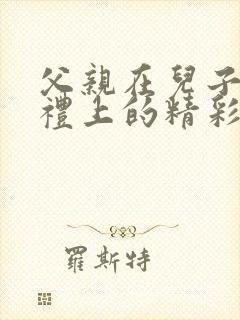 父親在兒子
禮上的精彩
羅斯特